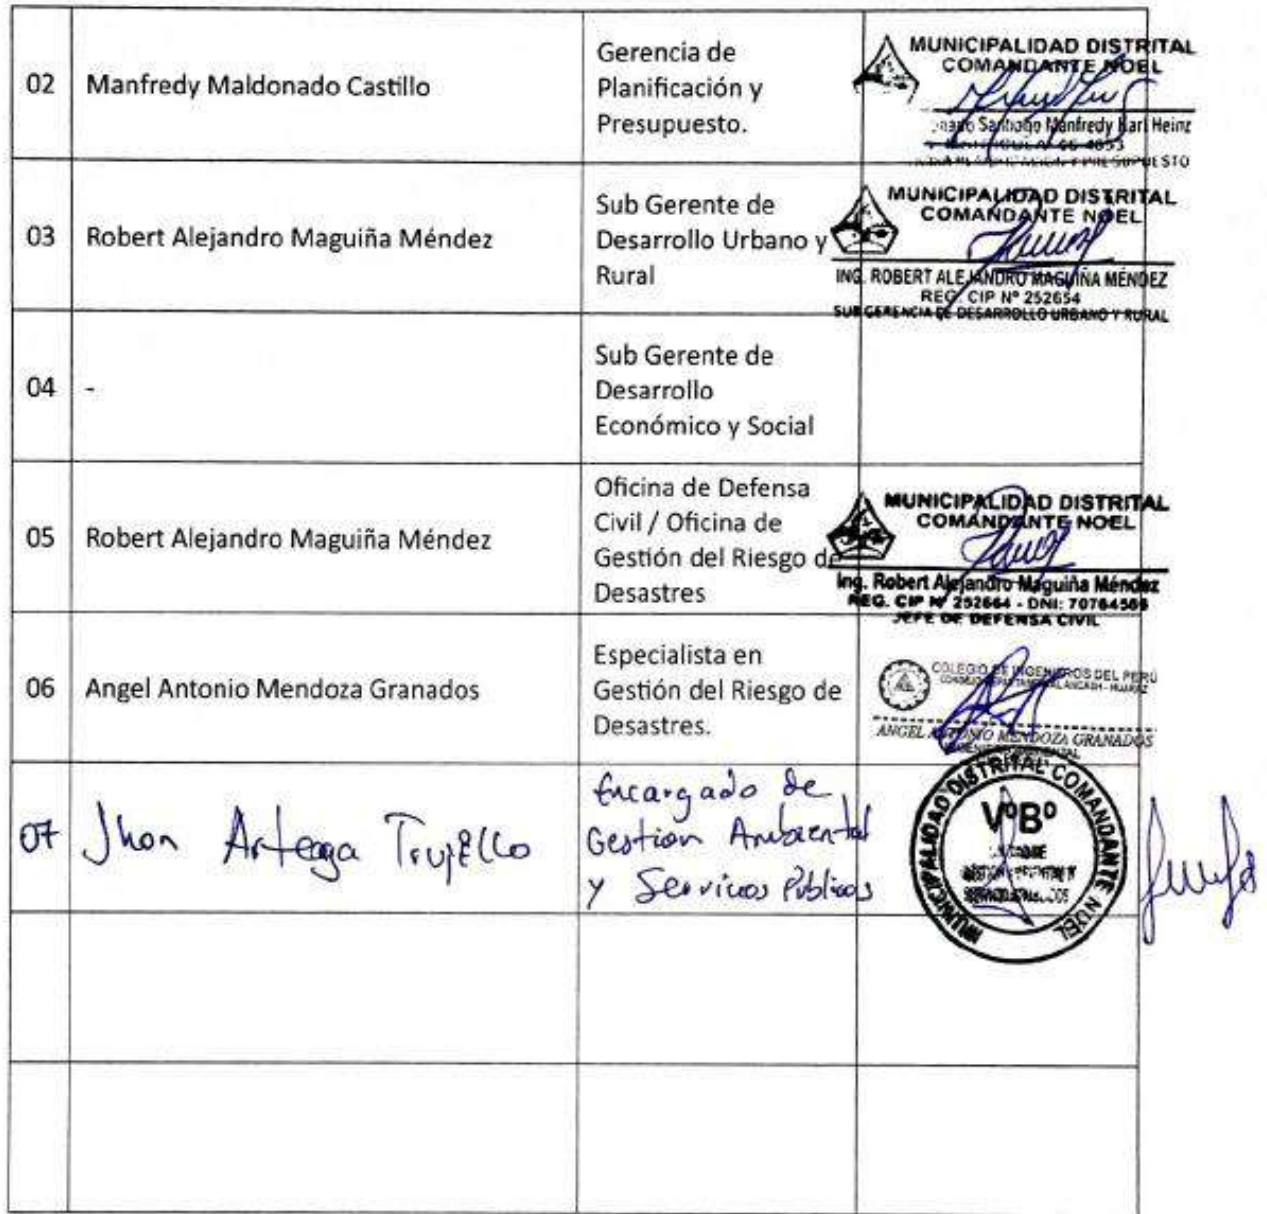 02
Manfredy Maldonado Castillo
Gerencia de
Planificación y
Presupuesto.
MUNICIPALIDAD DISTRITAL
COMANDANTE NOEL
Santiago Manfredy Karl Heinz
PRESUPUESTO
03
Robert Alejandro Maguiña Méndez
Sub Gerente de
Desarrollo Urbano y
Rural
MUNICIPALIDAD DISTRITAL
COMANDANTE NOEL
ING. ROBERT ALEJANDRO MAGUIÑA MÉNDEZ
REG. CIP Nº 252654
SUB GERENCIA DE DESARROLLO URBANO Y RURAL
04
-
Sub Gerente de
Desarrollo
Económico y Social
05
Robert Alejandro Maguiña Méndez
Oficina de Defensa
Civil / Oficina de
Gestión del Riesgo de
Desastres
MUNICIPALIDAD DISTRITAL
COMANDANTE NOEL
Ing. Robert Alejandro Maguiña Méndez
REG. CIP Nº 252664 - DNI:
JEFE DE DEFENSA CIVIL
06
Angel Antonio Mendoza Granados
Especialista en
Gestión del Riesgo de
Desastres.
COLEGIO DE INGENIEROS DEL PERÚ
ANCASH - HUARAZ
ANGEL ANTONIO MENDOZA GRANADOS
07
Jhon Arteaga Trujillo
Encargado de
Gestion Ambiental
y Servicios Públicos
MUNICIPALIDAD DISTRITAL COMANDANTE NOEL
VºBº